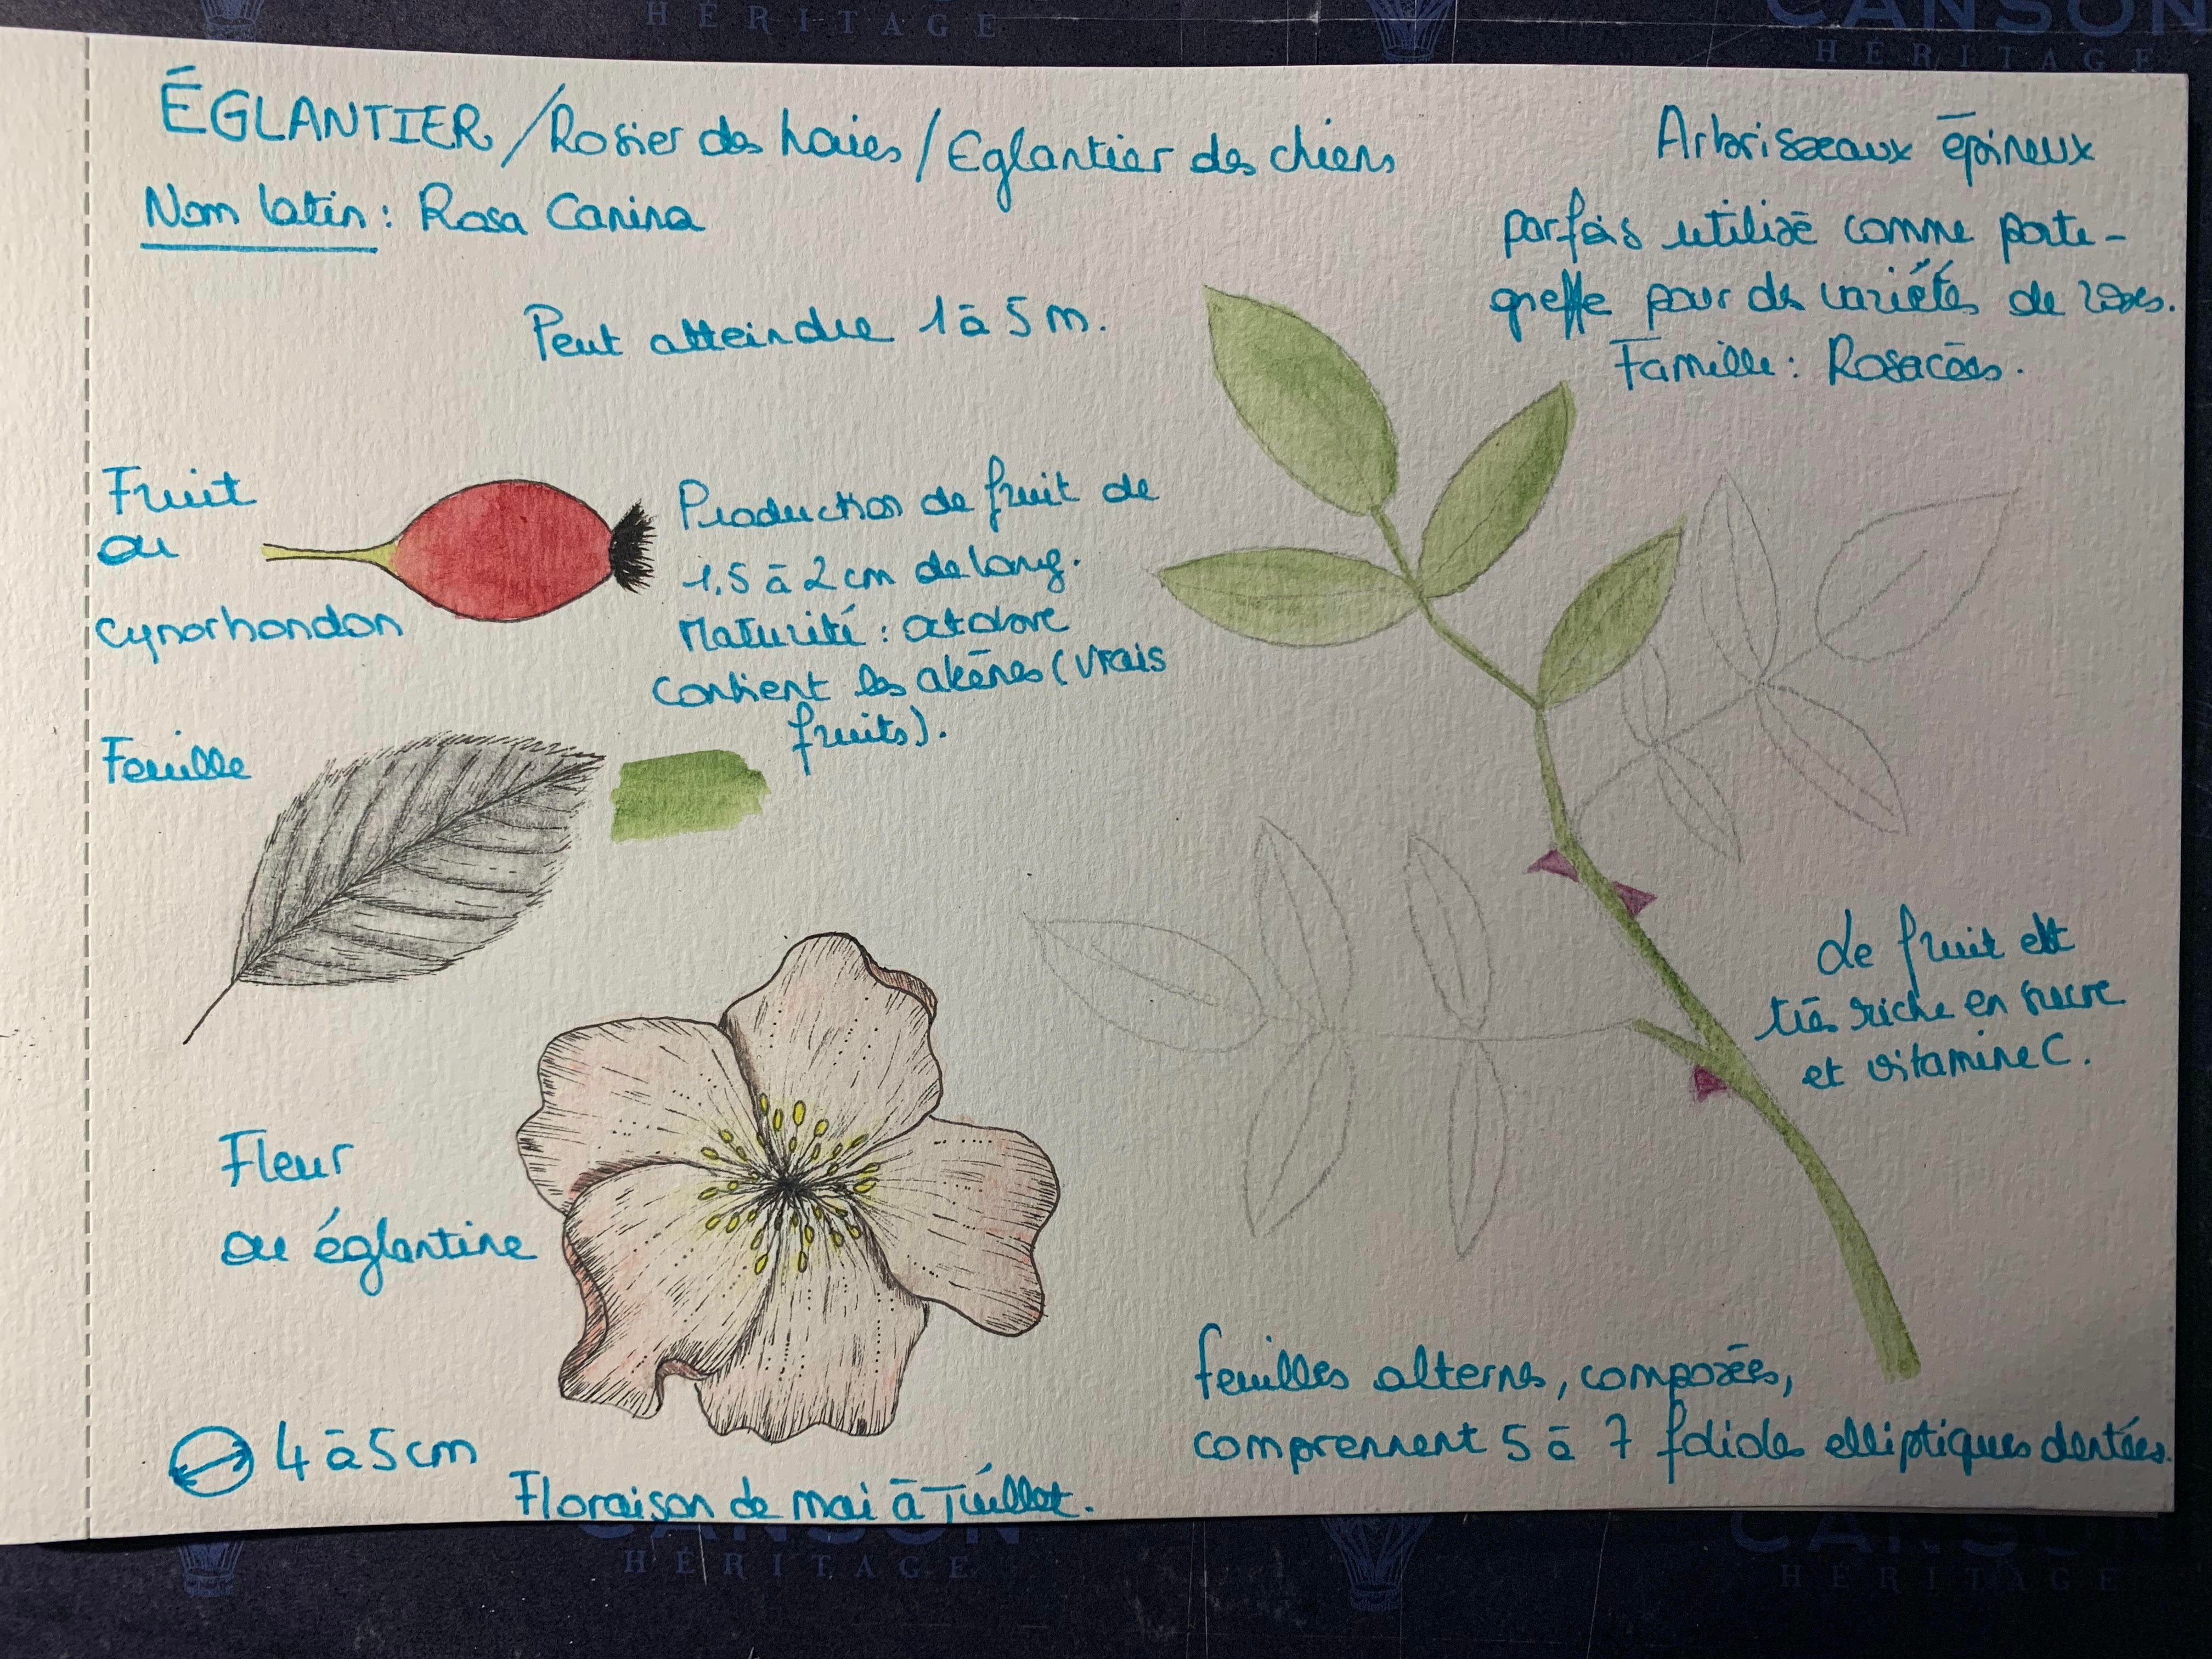 CANSON
HÉRITAGE
HÉRITAGE
ÉGLANTIER / Rosier des haies / Eglantier des chiens
Nom latin : Rosa Canina
Arbrisseaux épineux
parfois utilisé comme porte-
greffe pour des variétés de roses.
Famille : Rosacées.
Peut atteindre 1 à 5 m.
Fruit
ou
cynorhondon
Production de fruit de
1,5 à 2 cm de long.
Maturité : octobre
contient les akènes (vrais
fruits).
Feuille
Le fruit est
très riche en sucre
et vitamine C.
Fleur
ou églantine
4 à 5 cm
Floraison de mai à Juillet.
feuilles alternes, composées,
comprennent 5 à 7 folioles elliptiques dentées.
CANSON
HÉRITAGE
CANSON
HÉRITAGE